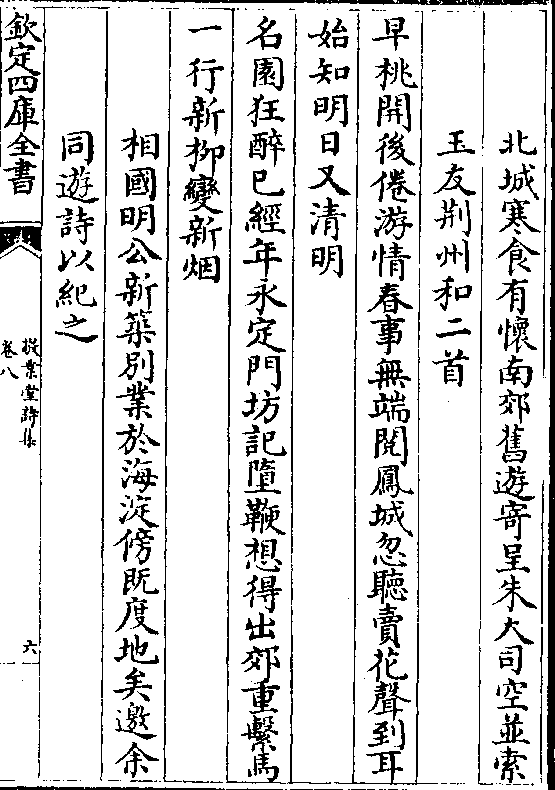 北城寒食有懷南郊舊遊寄呈朱大司空並索
玉友荆州和二首
早桃開後倦游情春事無端閱鳳城忽聽賣花聲到耳
始知明日又清明
名園狂醉已經年永定門坊記墮鞭想得出郊重繫馬
一行新柳變新烟
相國明公新築別業於海淀傍既度地矣邀余
同遊詩以紀之
欽定四庫全書
敬業堂詩集
卷八
六